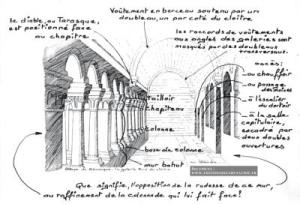 Voûtement en berceau soutenu par un
doubleau, un par coté du cloître
le diable, ou Tarasque,
est positionné face
au chapitre
les raccords de voûtements
aux angles des galeries sont
masqués par des doubleaux
transversaux.
accès:
au chauffoir
au passage
des moines
à l'escalier
du dortoir
à la salle
capitulaire,
encadré par
deux doubles
ouvertures
tailloir
chapiteau
colonne
base de colonne
mur bahut
Que signifie, l'opposition de la rudesse de ce mur,
au raffinement de la colonnade qui lui fait face?